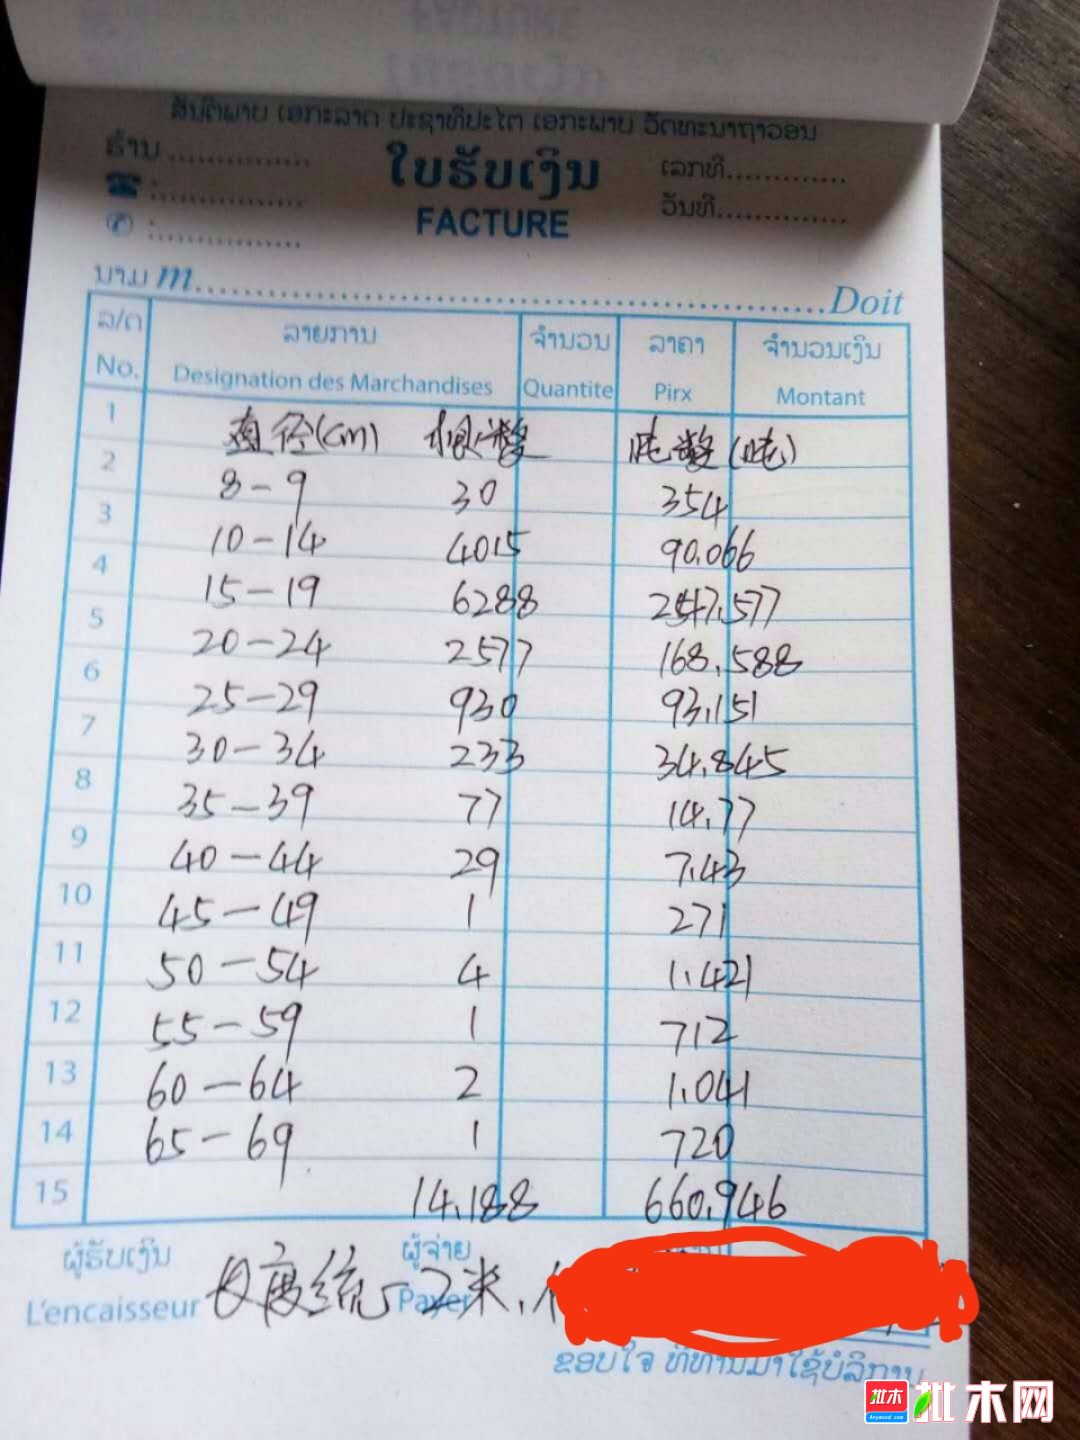 ສັນຕິພາບ ເອກະລາດ ປະຊາທິປະໄຕ ເອກະພາບ ວັດທະນາຖາວອນ
ຮ້ານ ............... ໃບຮັບເງິນ ເລກທີ.............
☎ :................ FACTURE ວັນທີ..............
✆ :................
ນາມ m..................................................Doit
ລ/ດ ລາຍການ ຈຳນວນ ລາຄາ ຈຳນວນເງິນ
No. Designation des Marchandises Quantite Pirx Montant
1 直径(cm) 根数 吨数(吨)
2 8-9 30 354
3 10-14 4015 90.066
4 15-19 6288 247.577
5 20-24 2577 168.588
6 25-29 930 93.151
7 30-34 233 34.845
8 35-39 77 14.77
9 40-44 29 7.43
10 45-49 1 271
11 50-54 4 1.421
12 55-59 1 712
13 60-64 2 1.041
14 65-69 1 720
15 14.188 660.946
ຜູ້ຮັບເງິນ ຜູ້ຈ່າຍ
L'encaisseur Payer
长度统一2米.
ຂອບໃຈ ທີ່ທ່ານມາໃຊ້ບໍລິການ
批木 Anywood.com 批木网